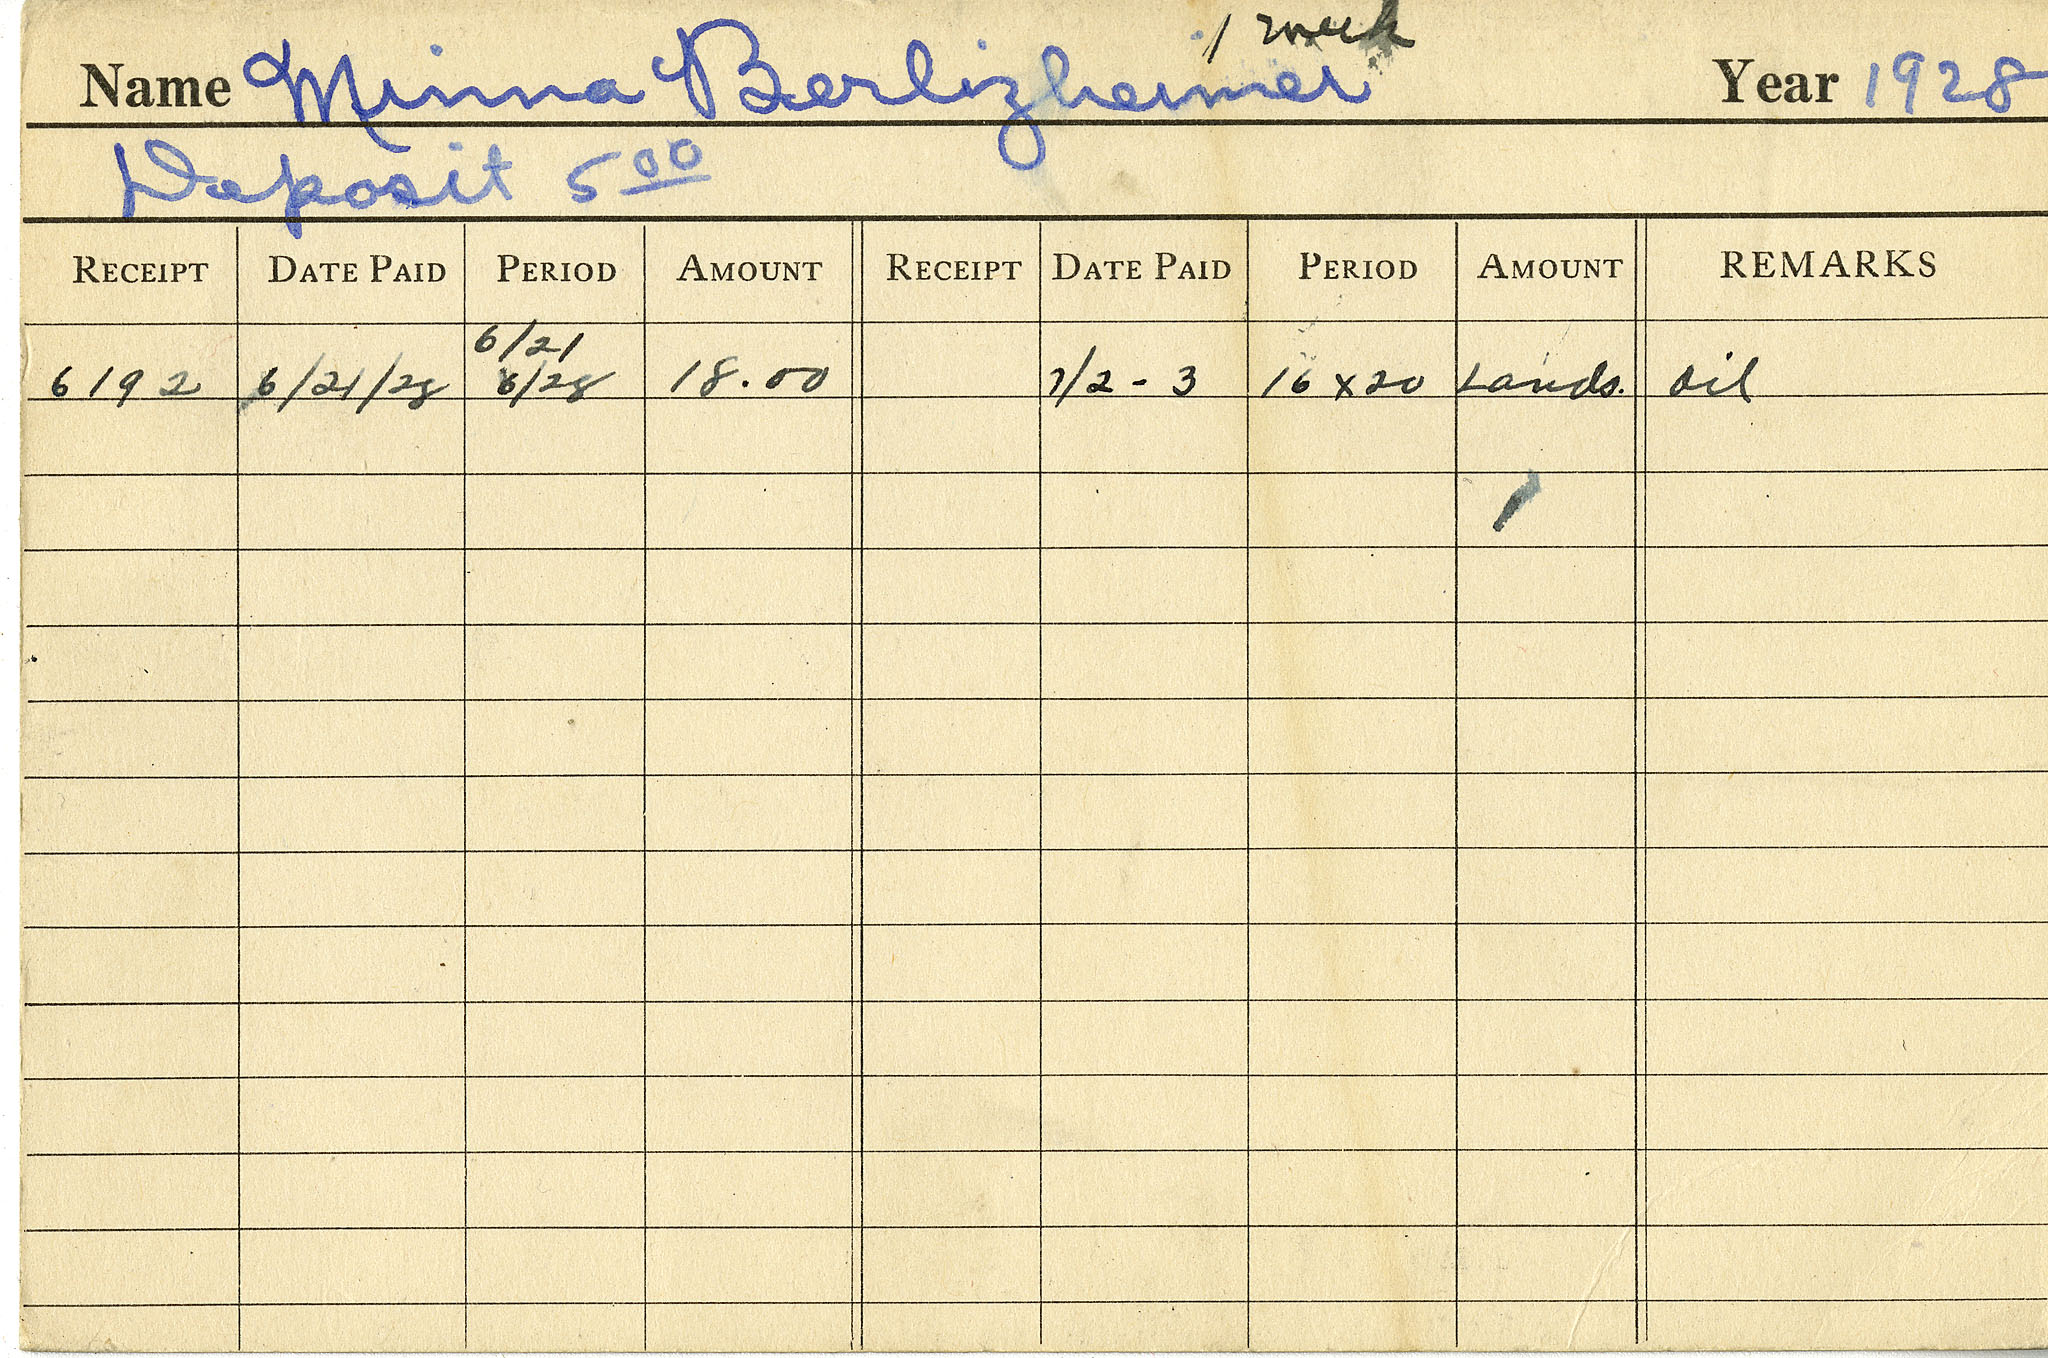 1 week
Name Minna Berlizheimer Year 1928
Deposit 5 00
RECEIPT DATE PAID PERIOD AMOUNT RECEIPT DATE PAID PERIOD AMOUNT REMARKS
6/21
6192 6/21/28 6/28 18.00 7/2-3 16 x 20 Lands. oil